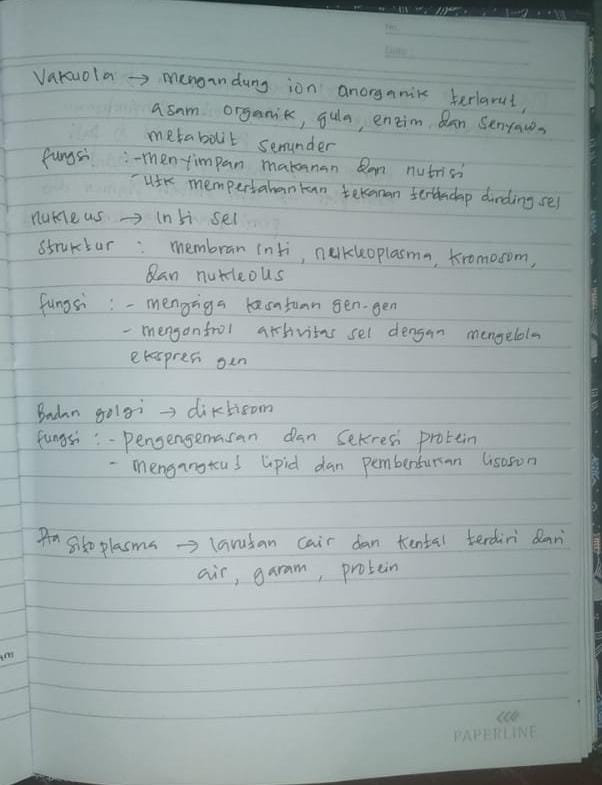 No.
Date
Vakuola → mengandung ion anorganik terlarut,
asam organik, gula, enzim, dan senyawa
metabolit sekunder
fungsi : - menyimpan makanan dan nutrisi
- utk mempertahankan tekanan terhadap dinding sel
nukleus → inti sel
struktur : membran inti, neukleoplasma, kromosom,
dan nukleous
fungsi : - menjaga kesatuan gen-gen
- mengontrol aktivitas sel dengan mengelola
ekspresi gen
Badan golgi → diktisom
fungsi : - Pengengemasan dan sekresi protein
- mengangkut lipid dan pembentukan lisoson
sitoplasma → larutan cair dan kental terdiri dari
air, garam, protein
am
PAPERLINE